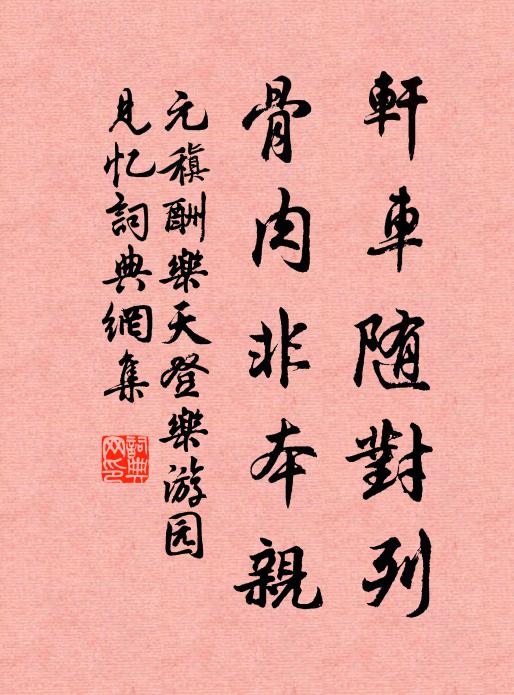 軒車随對列
骨肉非本親
元稹酬樂天登樂游园
見忆詞典網集
詞典
网印